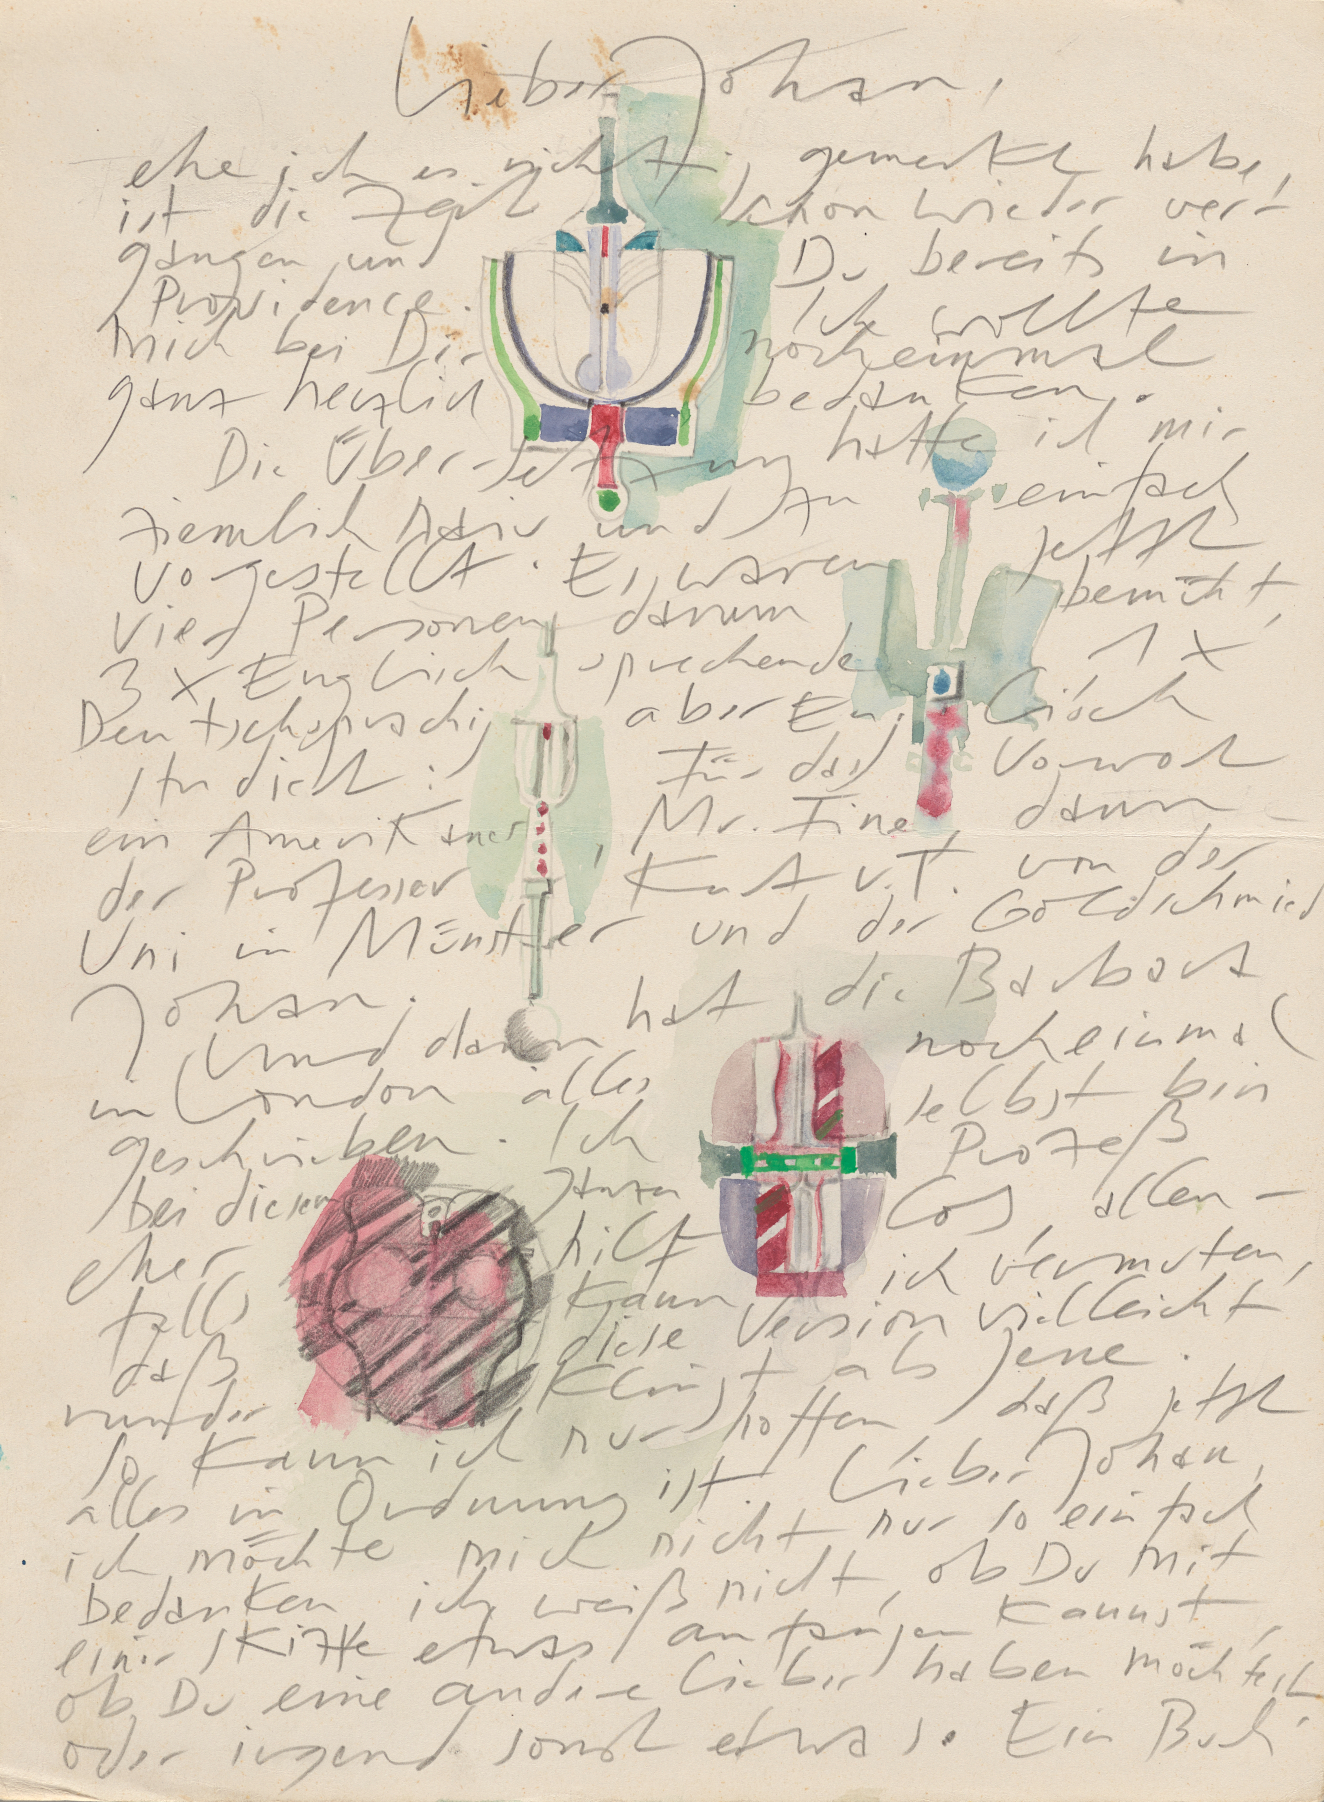 Lieber Johan,
ehe ich es nicht gemerkt habe,
ist die Zeit schon wieder ver-
gangen und Du bereits in
Providence. Ich wollte
mich bei Dir nocheinmal
ganz herzlich bedanken.
Die Übersetzung hatte ich mir
ziemlich naiv und zu einfach
vorgestellt. Es waren jetzt
vier Personen darum bemüht,
3 x Englisch sprechende 1 x
Deutschsprachig aber Englisch
studiert: Für das Vorwort
ein Amerikaner, Mr. Fine, dann
der Professor Kurt v. T. von der
Uni in Münster und der Goldschmied
Johan.
Und dann hat die Barbara
in London alles nocheinmal
geschrieben. Ich selbst bin
bei diesem ganzen Prozeß
eher hilflos, allen-
falls kann ich vermuten,
daß diese Version vielleicht
runder klingt als jene.
So kann ich nur hoffen, daß jetzt
alles in Ordnung ist. Lieber Johan,
ich möchte mich nicht nur so einfach
bedanken, ich weiß nicht, ob Du mit
einer Skizze etwas anfangen kannst,
ob Du eine andere lieber haben möchtest
oder irgend sonst etwas. Ein Buch